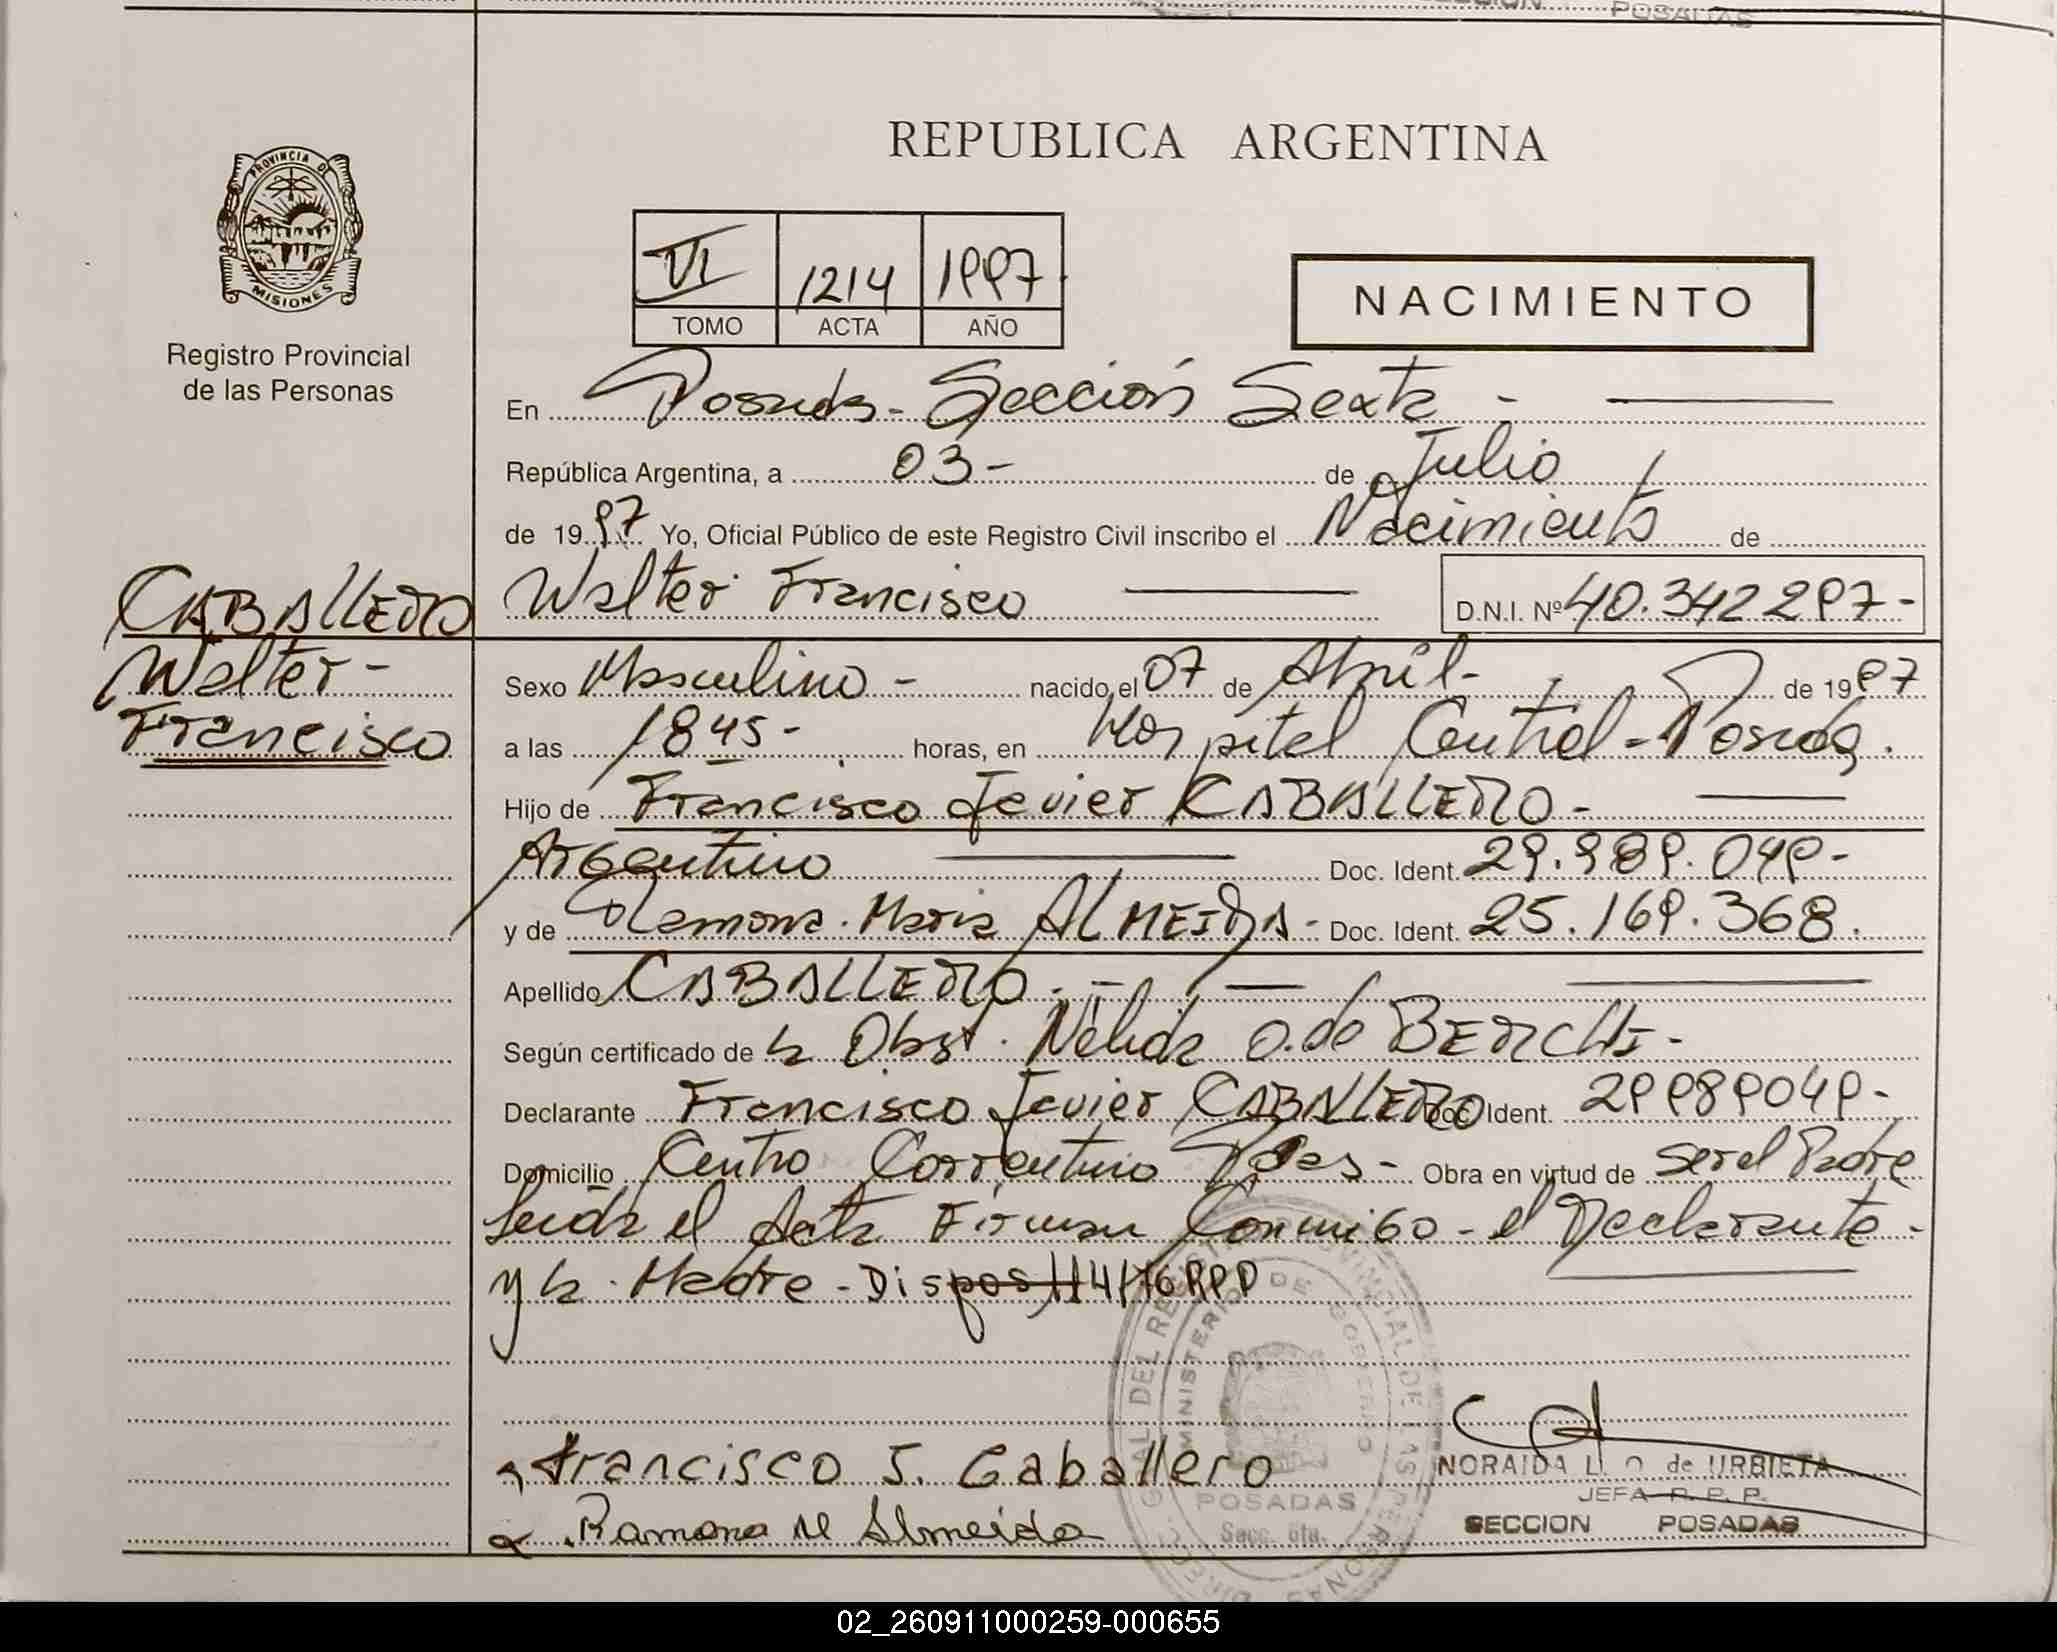 POSADAS
REPUBLICA ARGENTINA
PROVINCIA DE
MISIONES
Registro Provincial
de las Personas
VI 1214 1997
TOMO ACTA AÑO
NACIMIENTO
En Posadas - Sección Sexta -
República Argentina, a 03- de Julio
de 1997 Yo, Oficial Público de este Registro Civil inscribo el Nacimiento de
Walter Francisco D.N.I. Nº 40.342297-
CABALLERO
Walter -
Francisco
Sexo Masculino - nacido el 07 de Abril - de 1997
a las 1845- horas, en Hospital Central - Posadas.
Hijo de Francisco Javier CABALLERO -
Argentino Doc. Ident. 29.989.049-
y de Ramona Maria ALMEIDA - Doc. Ident. 25.169.368.
Apellido CABALLERO. -
Según certificado de la Obst. Nélida O. de BERCHI -
Declarante Francisco Javier CABALLERO Doc. Ident. 29989049-
Domicilio Centro Correntino Pdas - Obra en virtud de ser el Padre
Leida el Acta Firman Conmigo - el Declarante -
y la Madre - Dispos 114/76 RPP
Francisco J. Caballero
Ramona M Almeida
NORAIDA L. O. de URBIETA
JEFA R. P. P.
SECCION POSADAS
DIRECC. GRAL DEL REGISTRO PROVINCIAL DE LAS PERSONAS
MINISTERIO DE GOBIERNO
POSADAS
Secc. 6ta.
02_260911000259-000655